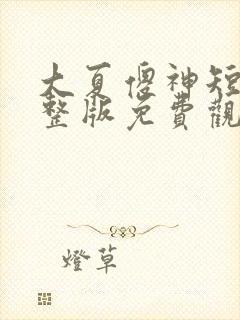 大夏傻神短
整版免費觀
燈草